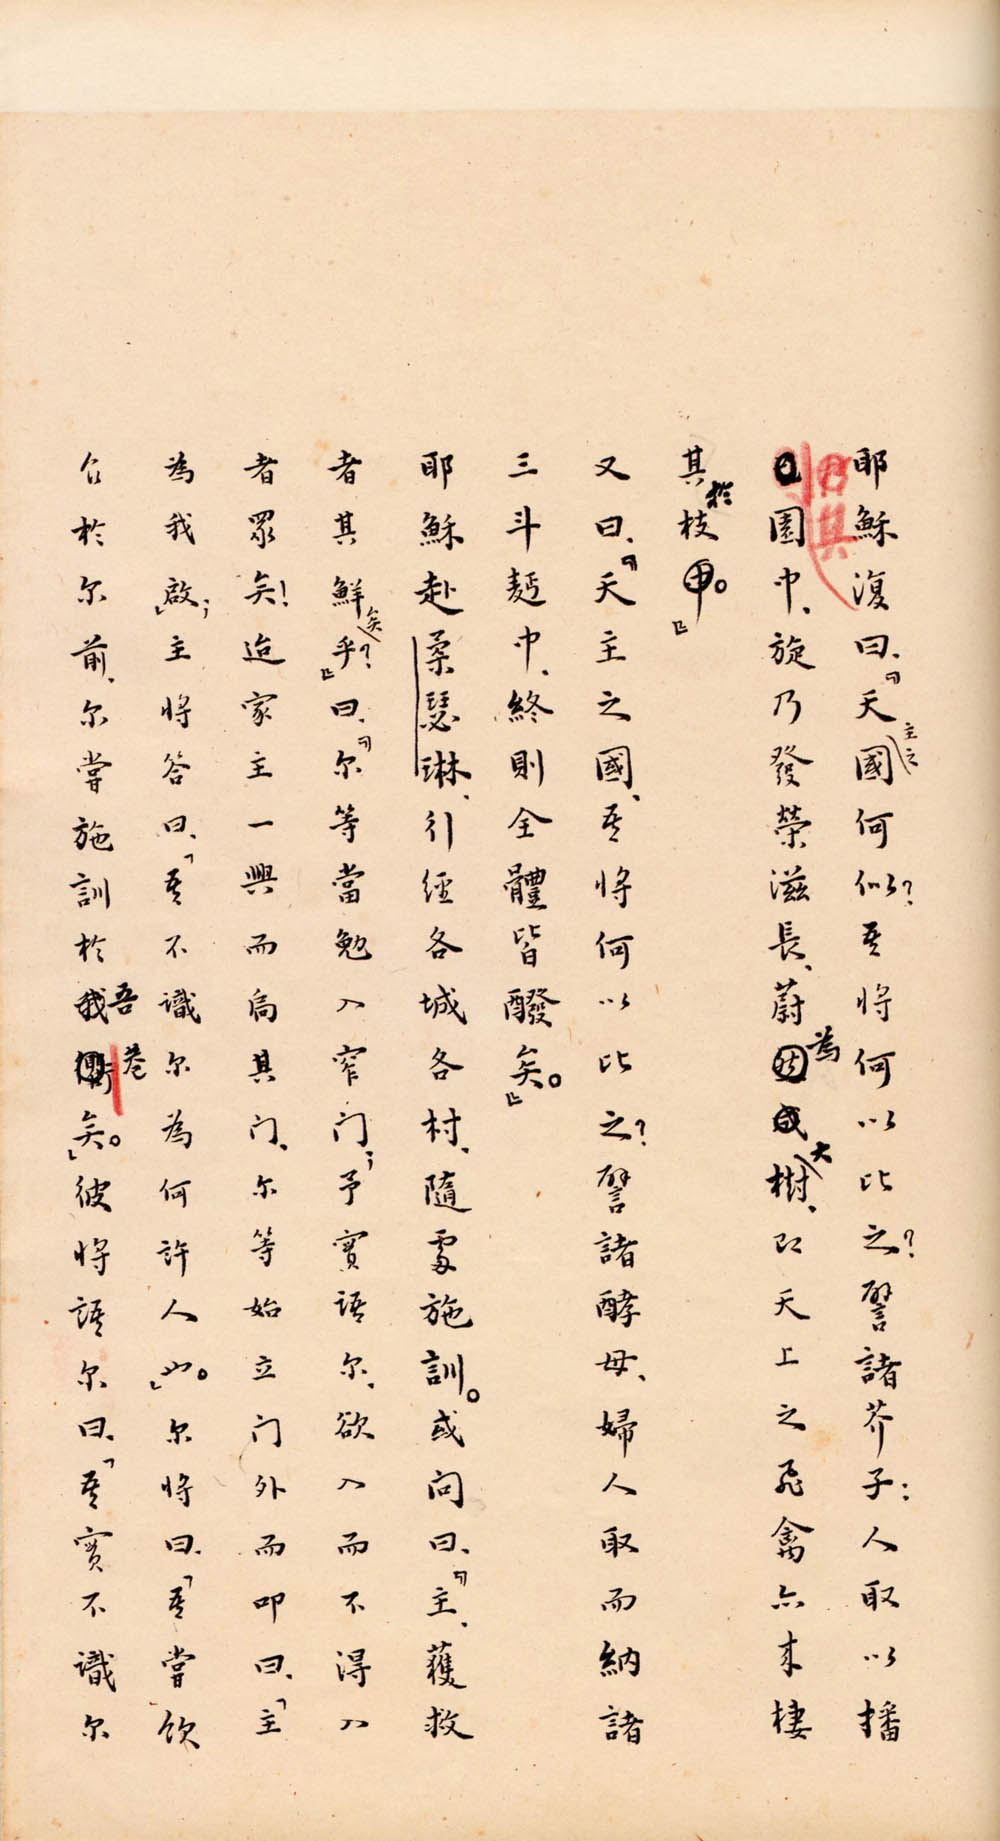 耶穌復曰、『天主之國何似？吾將何以比之？譬諸芥子：人取以播
園中、旋乃發榮滋長、蔚為成大樹、即天上之飛禽亦來棲
其於枝中。』
又曰、『天主之國、吾將何以比之？譬諸酵母、婦人取而納諸
三斗麪中、終則全體皆醱矣。』
耶穌赴柔瑟琳、行經各城各村、隨處施訓。或問曰、『主、獲救
者其鮮矣乎？』曰、『爾等當勉入窄门；予實語尔、欲入而不得入
者眾矣！迨家主一興而扃其门、尔等始立门外而叩曰、「主
為我啟」；主將答曰、「吾不識尔為何許人也。」尔將曰、「吾嘗飲
食於尔前、尔嘗施訓於吾巷矣。」彼將語尔曰、「吾實不識尔